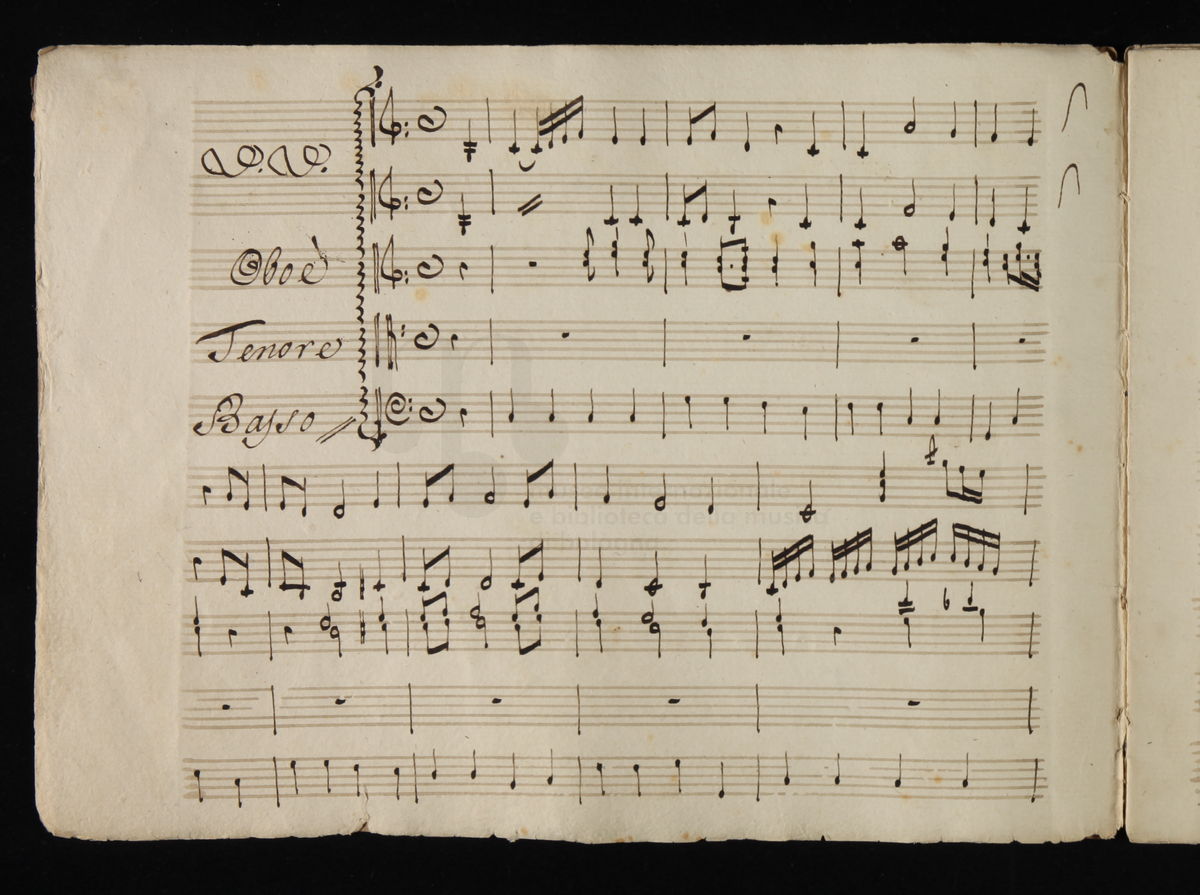 VV. VV.
Oboè
Tenore
Basso
museo internazionale
e biblioteca della musica
di bologna